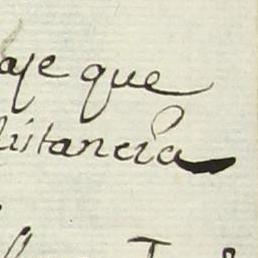 aje que
distancia